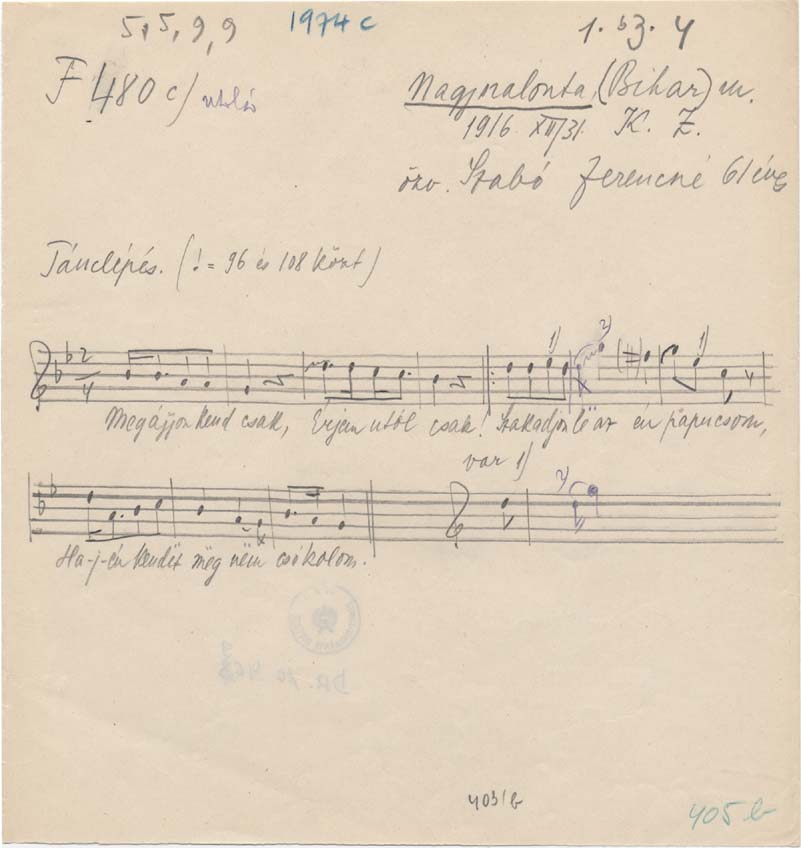 5, 5, 9, 9 1974 c 1. b3. 4
F 480 c) utolsó Nagyszalonta, (Bihar) m.
1916. XII/31. K. Z.
özv. Szabó Ferencné 61 éves
Tánclépés. (♩ = 96 és 108 közt)
1) 2) 1)
2
4
Megájjon kend csak, Érjen utól csak! Szakadjon lë az én papucsom,
var 1)
2)
Ha-j-én kendët mëg nëm csókolom.
403/b 405 b